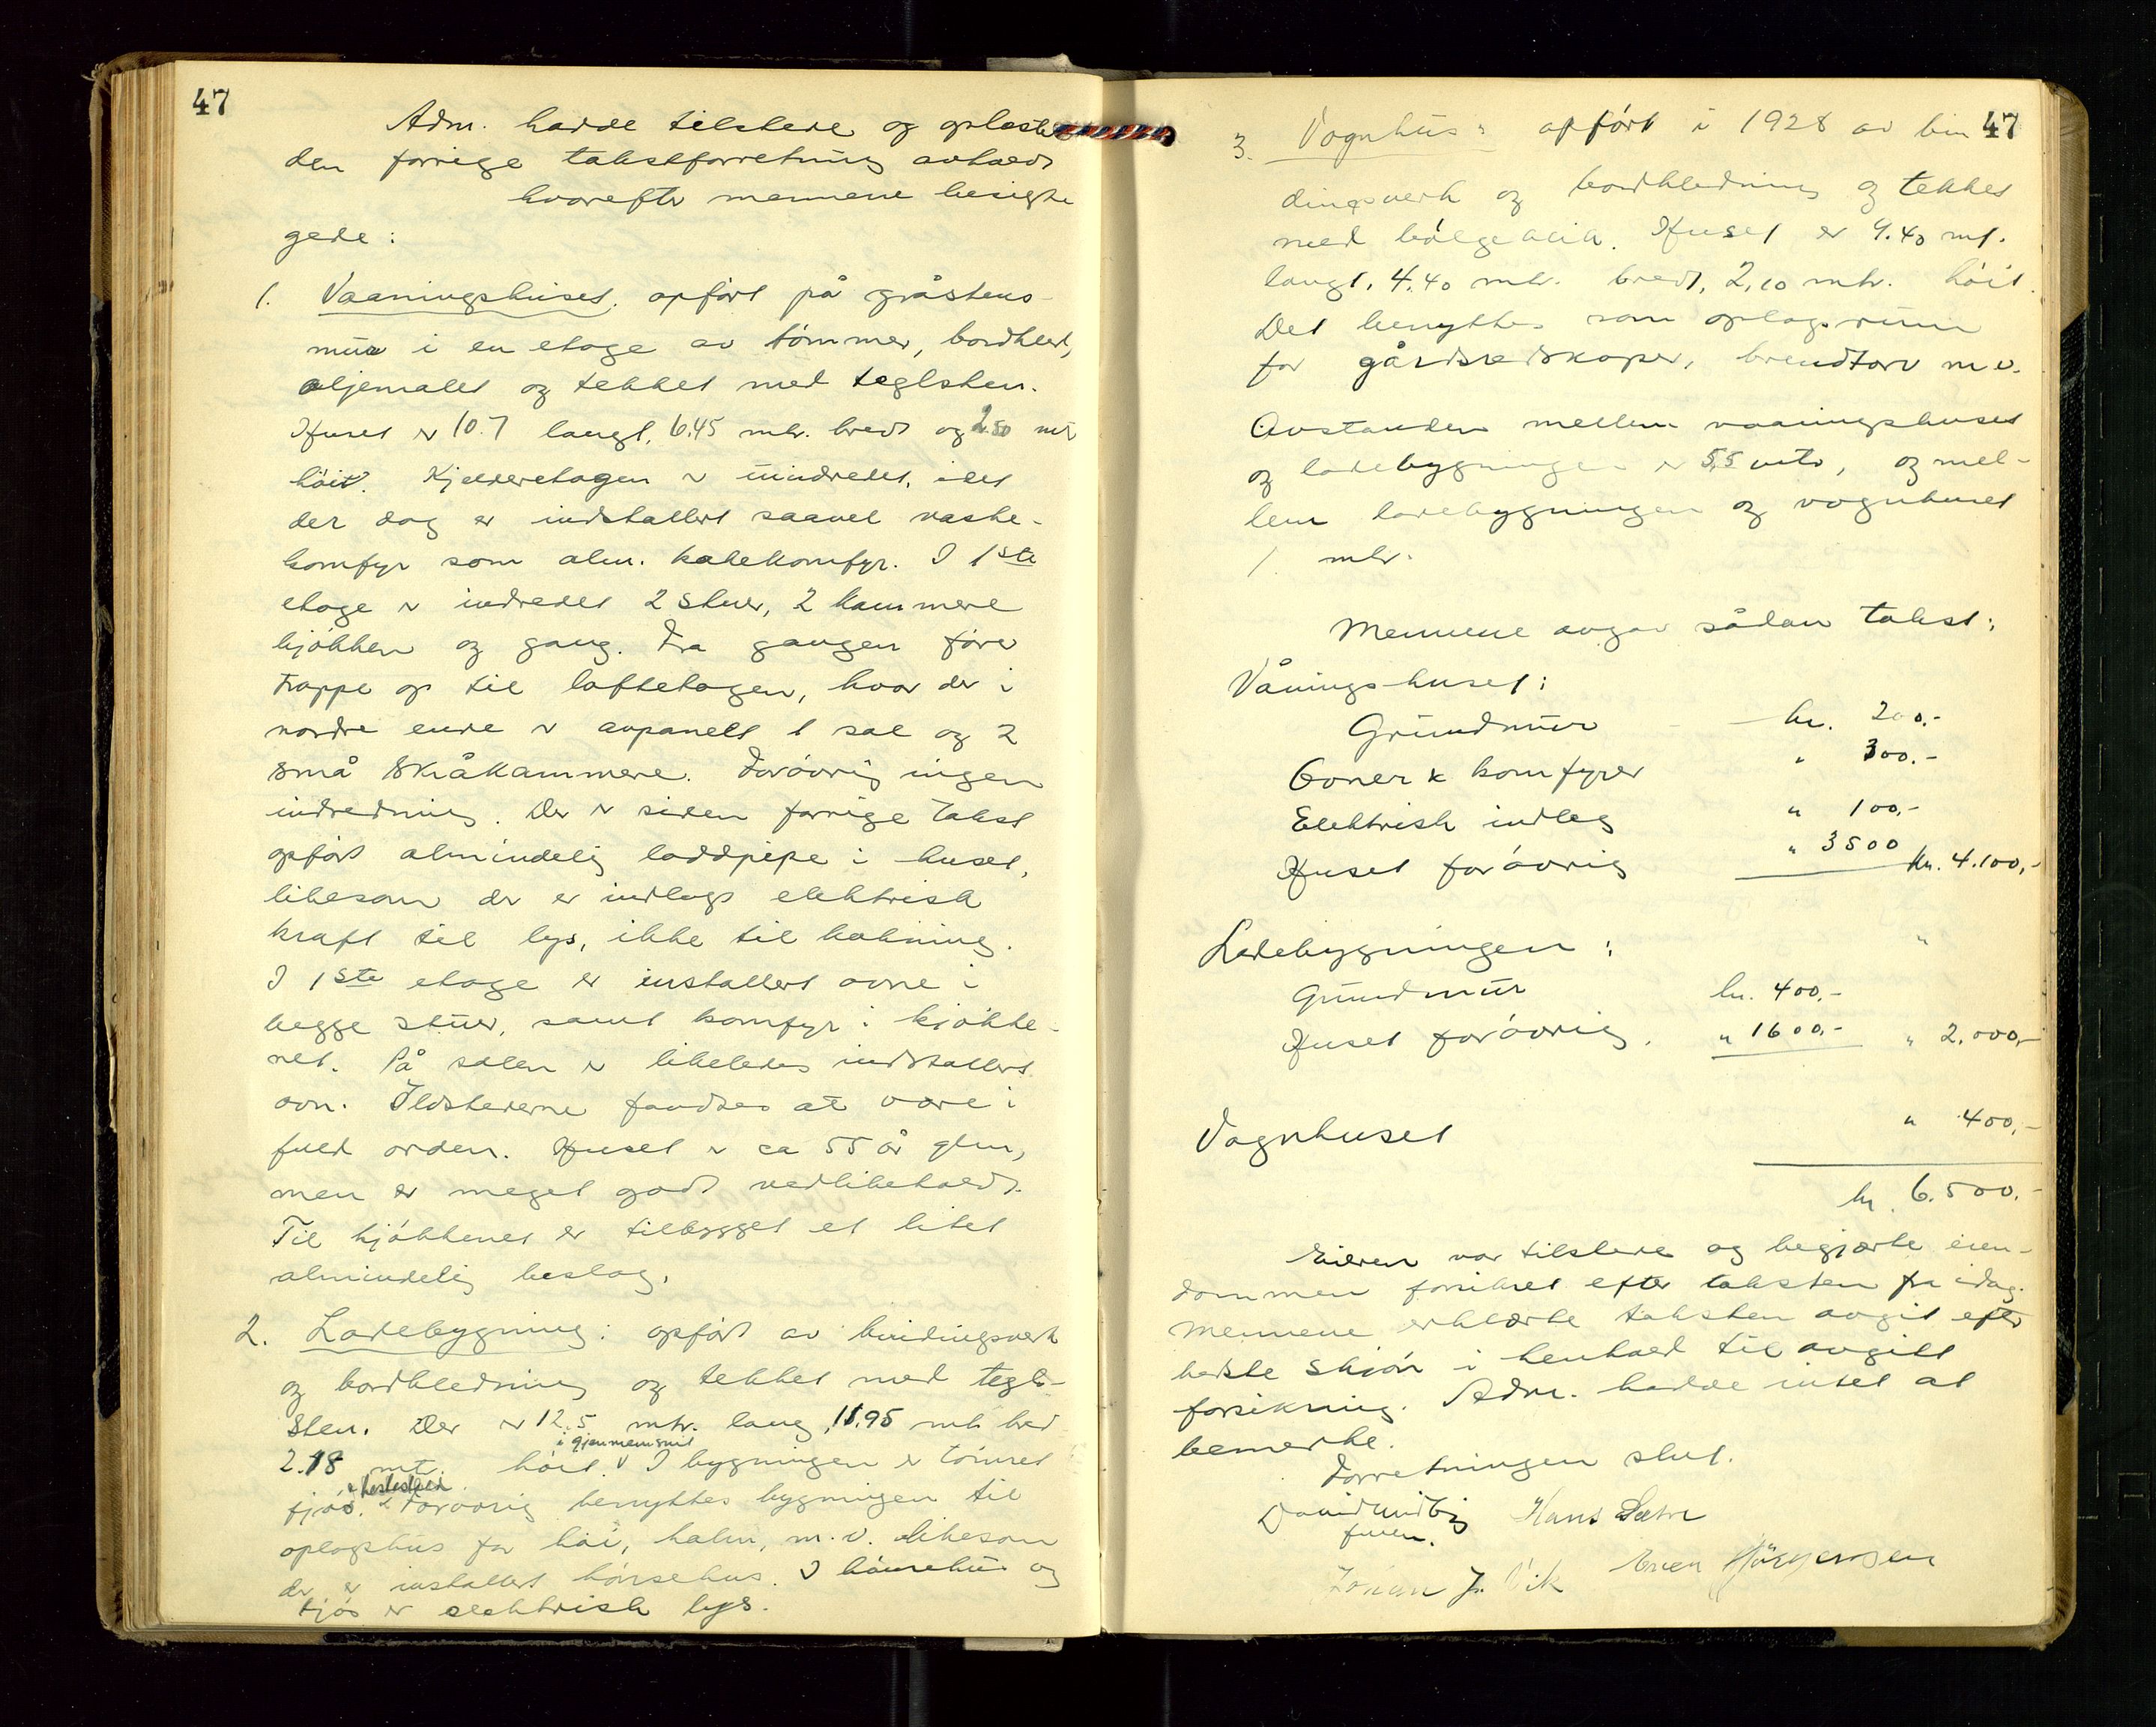 47
Adm. hadde tilstede og oplæste
den forrige takstforretning avholdt
hvorefter mennene besigti
gede:
1. Vaaningshuset, opført på gråstens-
mur i en etage av tømmer, bordklædt,
oljemalet og tekket med teglsten.
Huset er 10.7 langt, 6.45 mtr. bredt og 2.50 mtr
høit. Kjelderetagen er uindredet, idet
der dog er indstallert saavel vaske-
komfyr som alm. kokekomfyr. I 1ste
etage er indredet 2 stuer, 2 kammere
kjøkken og gang. Fra gangen fører
trappe op til loftetagen, hvor der i
nordre ende er avpanelt 1 sal og 2
små skråkammere. Forøvrig ingen
indredning. Der er siden forrige takst
opført almindelig loddpipe i huset,
likesom der er indlagt elektrisk
kraft til lys, ikke til kokning.
I 1ste etage er installert ovne i
begge stuer, samt komfyr i kjøkke-
net. På salen er likeledes indstallert
ovn. Ildstederne fandtes at være i
fuld orden. Huset er ca 55 år glm,
men er meget godt vedlikeholdt.
Til kjøkkenet er tilbygget et litet
almindelig beslag.
2. Ladebygning: opført av bindingsverk
og bordkledning og tekket med tegl-
sten. Der er 12.5 mtr. lang, 11.95 mtr bred
i gjennemsnit
2.18 mtr. høit. I bygningen er tømret
& hestestald.
fjøs. Forøvrig benyttes bygningen til
oplagshus for høi, halm, m.v. likesom
der er installert hønsehus. I hønsehus og
fjøs er elektrisk lys.
47
3. Vognhus: opført i 1928 av bin
dingsverk og bordkledning og tekket
med bølgeblik. Huset er 9.40 mt.
langt, 4.40 mtr. bredt, 2,10 mtr. høit.
Det benyttes som oplagsrum
for gårdsredskaper, brendtorv m.v.
Avstanden mellem vaaningshuset
og ladebygningen er 5,5 mtr, og mel-
lem ladebygningen og vognhuset
1. mtr.
Mennene avgav sådan takst:
Våningshuset:
Grundmur kr. 200.-
Ovner & komfyrer " 300.-
Elektrisk indleg " 100,-
Huset forøvrig " 3500 kr. 4.100,-
Ladebygningen: "
Grundmur kr. 400.-
Huset forøvrig. " 1600.- " 2.000,-
Vognhuset " 400,-
kr. 6.500.-
Eieren var tilstede og begjærte eien-
dommen forsikret efter taksten fra idag.
Mennene erklærte taksten avgit efter
bedste skjøn i henhold til avgitt
forsikring. Adm. hadde intet at
bemerke.
Forretningen slut.
Hans Sæter
fung.
Johan J. Vik Enen Hjörgensen